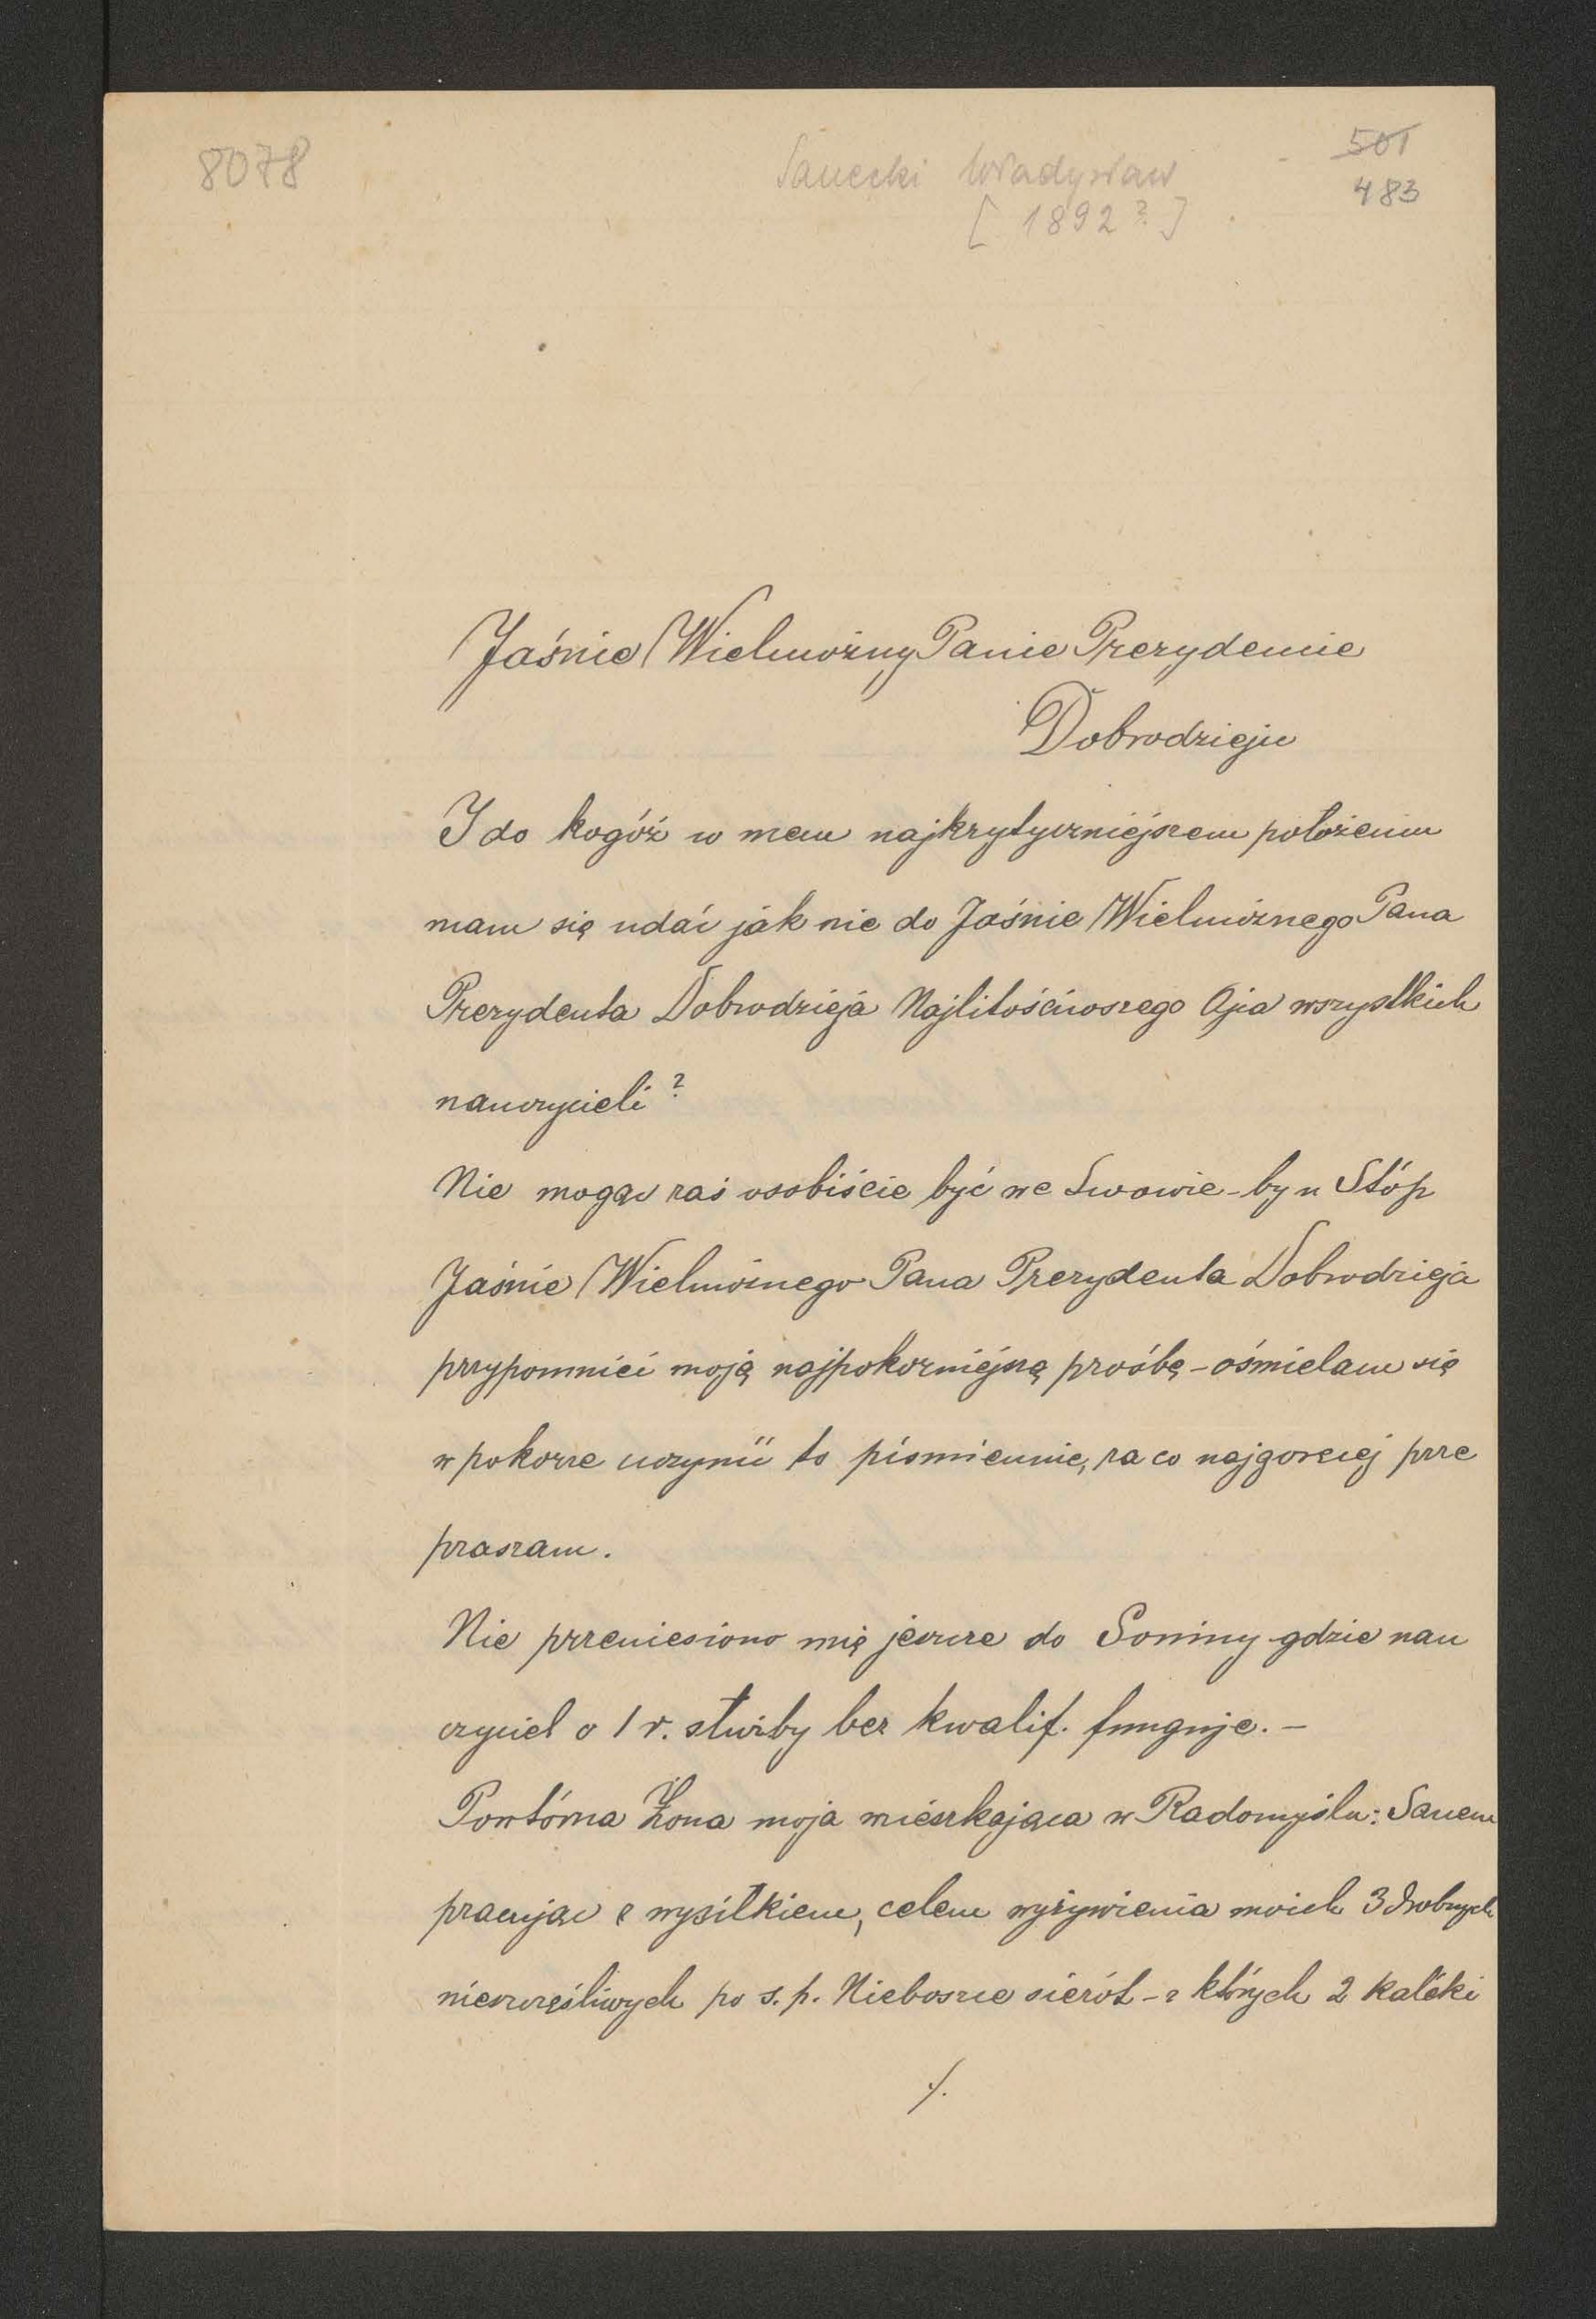 8078
Sanecki Władysław
[1892?]
501
483
Jaśnie Wielmożny Panie Prezydencie
Dobrodzieju
I do kogóż w mem najkrytyczniejszem położeniu
mam się udać jak nie do Jaśnie Wielmożnego Pana
Prezydenta Dobrodzieja Najlitościwszego Ojca wszystkich
nauczycieli?
Nie mogąc zaś osobiście być we Lwowie - by u Stóp
Jaśnie Wielmożnego Pana Prezydenta Dobrodzieja
przypomnieć moją najpokorniejszą prośbę - ośmielam się
w pokorze uczynić to piśmiennie, za co najgoręcej prze
praszam.
Nie przeniesiono mię jeszcze do Soniny gdzie nau
czyciel o 1 r. służby bez kwalif. funguje. -
Powtórna Żona moja mieszkająca w Radomyślu:
pracując z wysiłkiem, celem wyżywienia moich 3 drobnych
nieszczęśliwych po s.p. Nieboszce sierót - z których 2 kaléki
./.